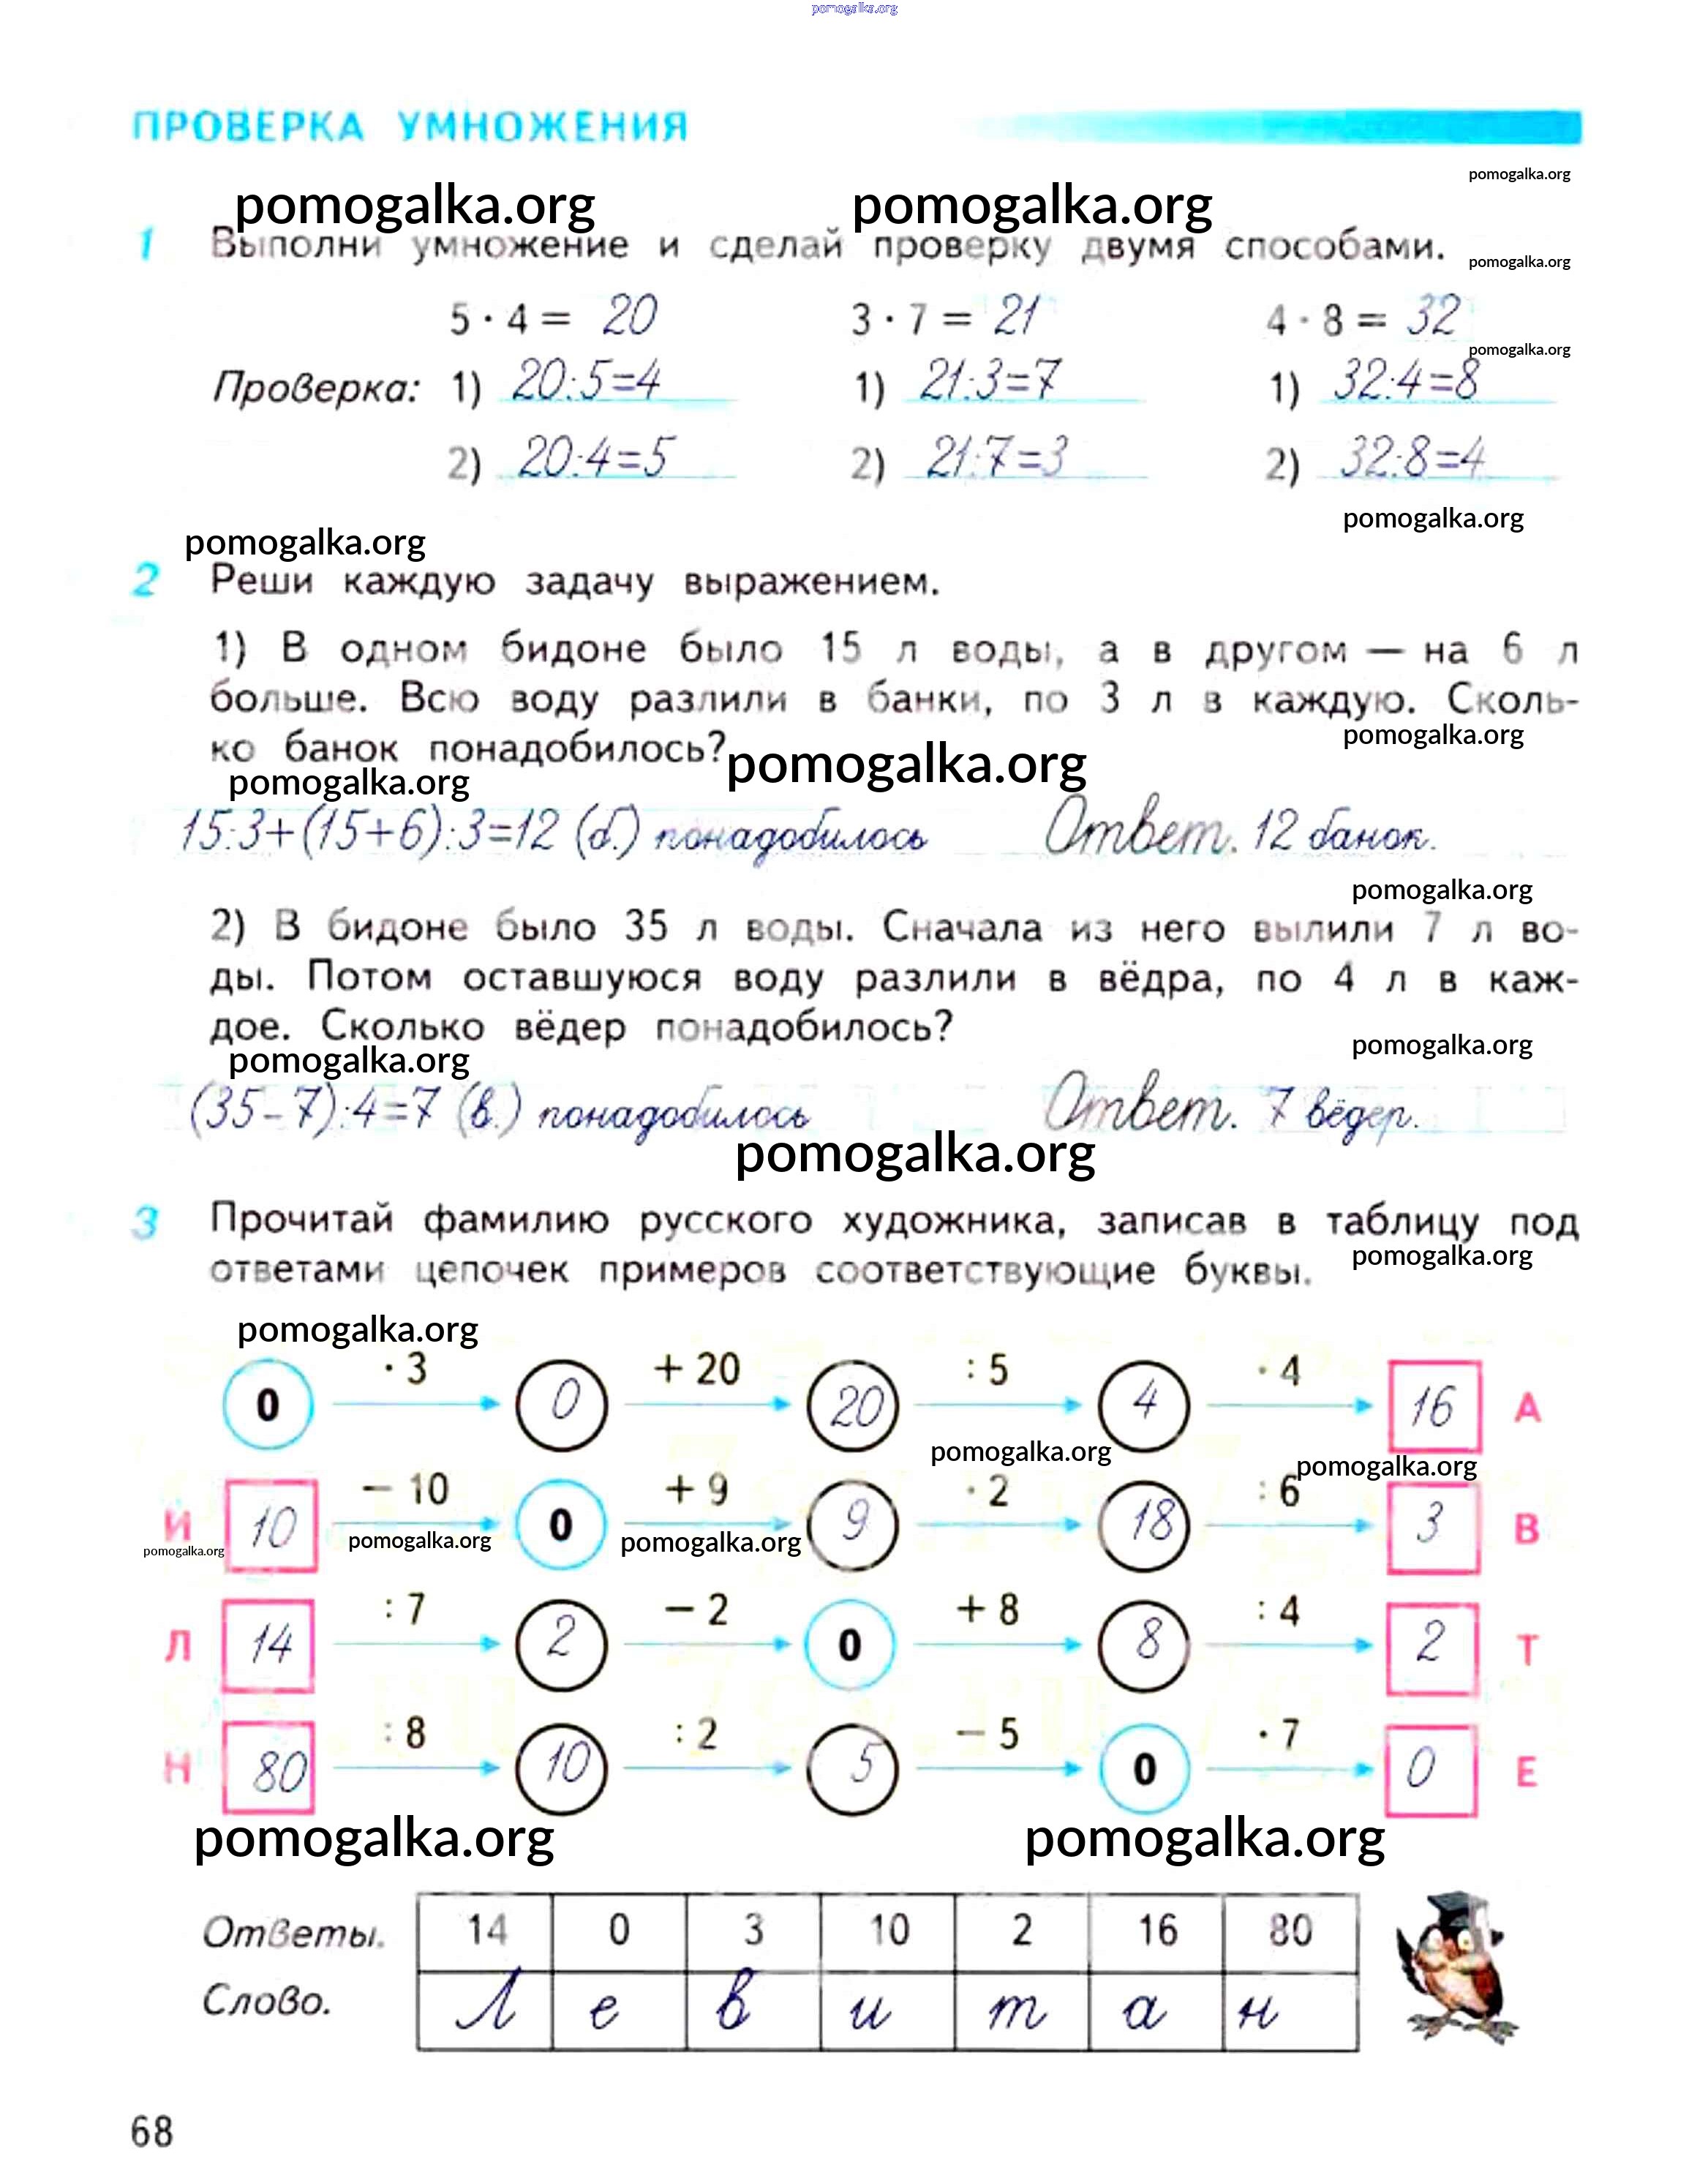 pomogalka.org
ПРОВЕРКА УМНОЖЕНИЯ
pomogalka.org
pomogalka.org pomogalka.org
1 Выполни умножение и сделай проверку двумя способами.
pomogalka.org
5 · 4 = 20 3 · 7 = 21 4 · 8 = 32
pomogalka.org
Проверка: 1) 20:5=4 1) 21:3=7 1) 32:4=8
2) 20:4=5 2) 21:7=3 2) 32:8=4
pomogalka.org
pomogalka.org
2 Реши каждую задачу выражением.
1) В одном бидоне было 15 л воды, а в другом — на 6 л
больше. Всю воду разлили в банки, по 3 л в каждую. Сколь-
ко банок понадобилось?
pomogalka.org
pomogalka.org
pomogalka.org
15:3+(15+6):3=12 (б.) понадобилось Ответ. 12 банок.
pomogalka.org
2) В бидоне было 35 л воды. Сначала из него вылили 7 л во-
ды. Потом оставшуюся воду разлили в вёдра, по 4 л в каж-
дое. Сколько вёдер понадобилось?
pomogalka.org
pomogalka.org
(35-7):4=7 (в.) понадобилось Ответ. 7 вёдер.
pomogalka.org
3 Прочитай фамилию русского художника, записав в таблицу под
ответами цепочек примеров соответствующие буквы.
pomogalka.org
pomogalka.org
· 3 + 20 : 5 · 4
0 0 20 4 16 А
pomogalka.org pomogalka.org
− 10 + 9 · 2 : 6
И 10 0 9 18 3 В
pomogalka.org pomogalka.org pomogalka.org
: 7 − 2 + 8 : 4
Л 14 2 0 8 2 Т
: 8 : 2 − 5 · 7
Н 80 10 5 0 0 Е
pomogalka.org pomogalka.org
Ответы. 14 0 3 10 2 16 80
Слово. Л е в и т а н
68